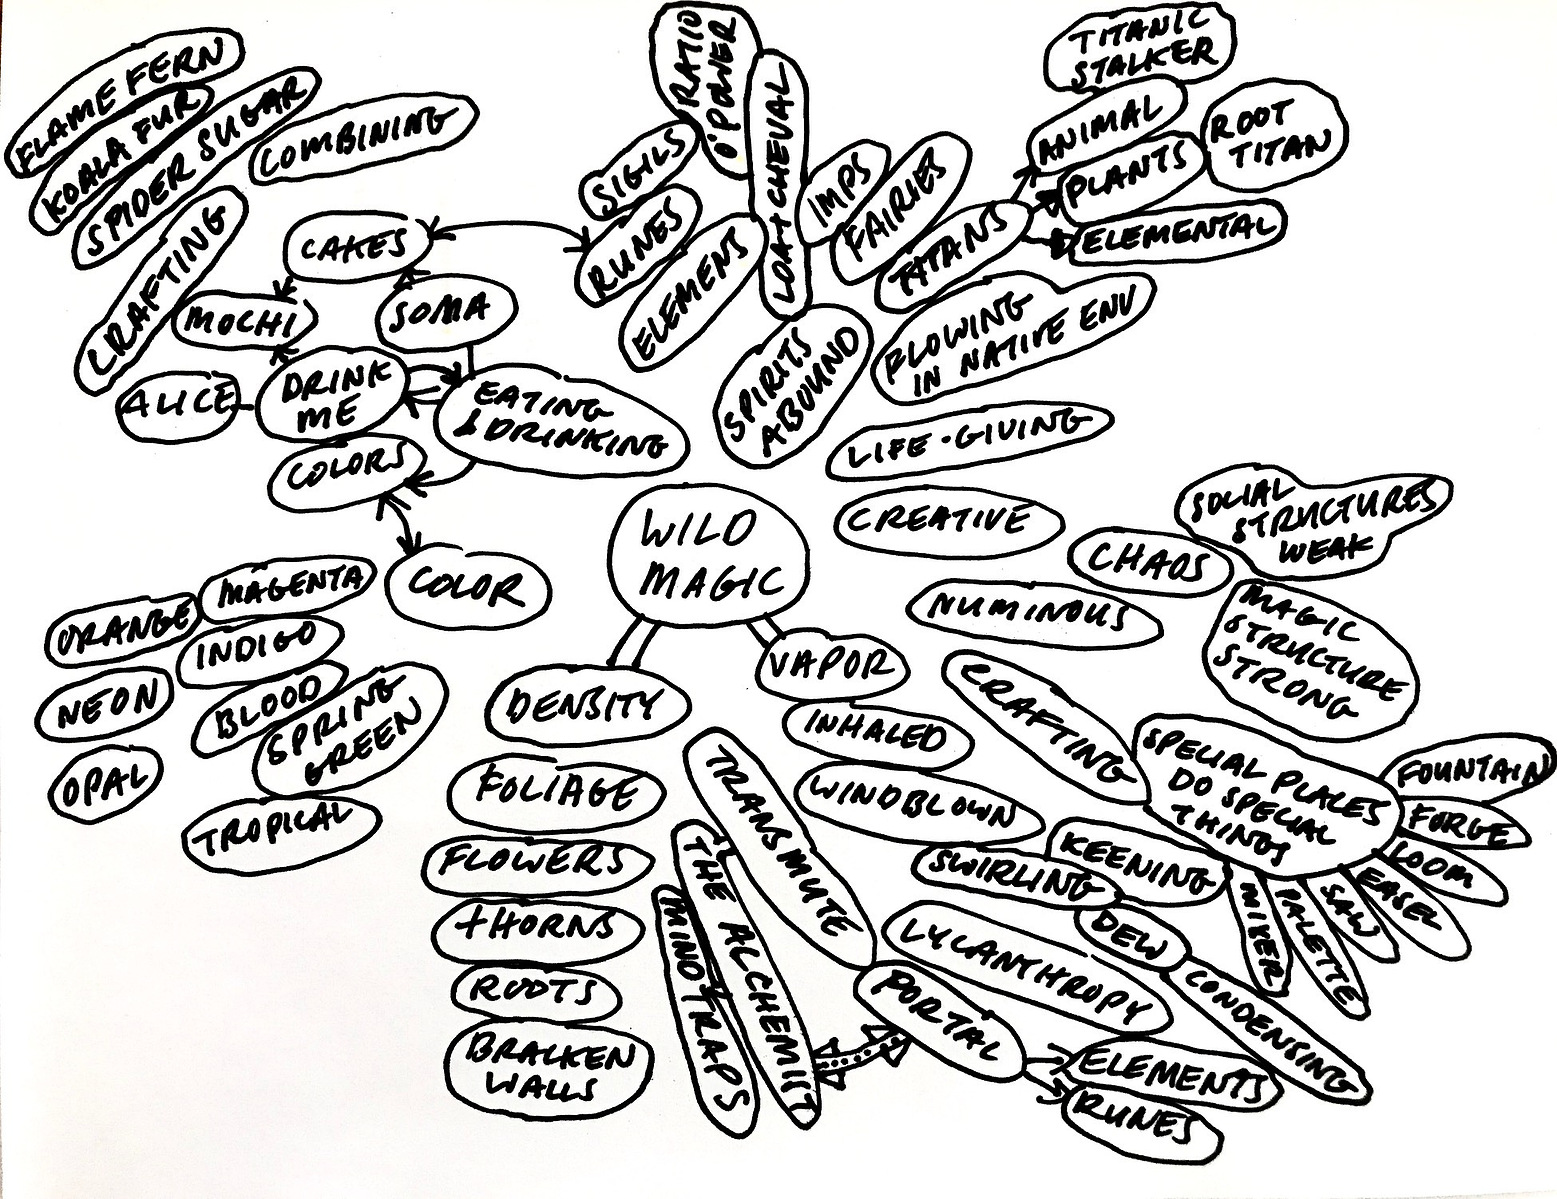 FLAME FERN
KOALA FUR
SPIDER SUGAR
COMBINING
CRAFTING
CAKES
MOCHI
SOMA
ALICE
DRINK
ME
EATING
& DRINKING
COLORS
COLOR
RATIO
O' POWER
SIGILS
RUNES
ELEMENT
LOA + CHEVAL
IMPS
FAIRIES
TITANS
TITANIC
STALKER
ANIMAL
PLANTS
ROOT
TITAN
ELEMENTAL
SPIRITS
ABOUND
FLOWING
IN NATIVE ENV
LIFE-GIVING
CREATIVE
WILD
MAGIC
NUMINOUS
CHAOS
SOCIAL
STRUCTURES
WEAK
MAGIC
STRUCTURE
STRONG
ORANGE
MAGENTA
INDIGO
NEON
BLOOD
SPRING
GREEN
OPAL
TROPICAL
DENSITY
FOLIAGE
FLOWERS
THORNS
ROOTS
BRACKEN
WALLS
VAPOR
INHALED
WINDBLOWN
SWIRLING
KEENING
DEW
CONDENSING
CRAFTING
SPECIAL PLACES
DO SPECIAL
THINGS
FOUNTAIN
FORGE
LOOM
EASEL
SAW
PALETTE
MIXER
TRANSMUTE
THE ALCHEMIST
MINOTRAPS
LYCANTHROPY
PORTAL
ELEMENTS
RUNES